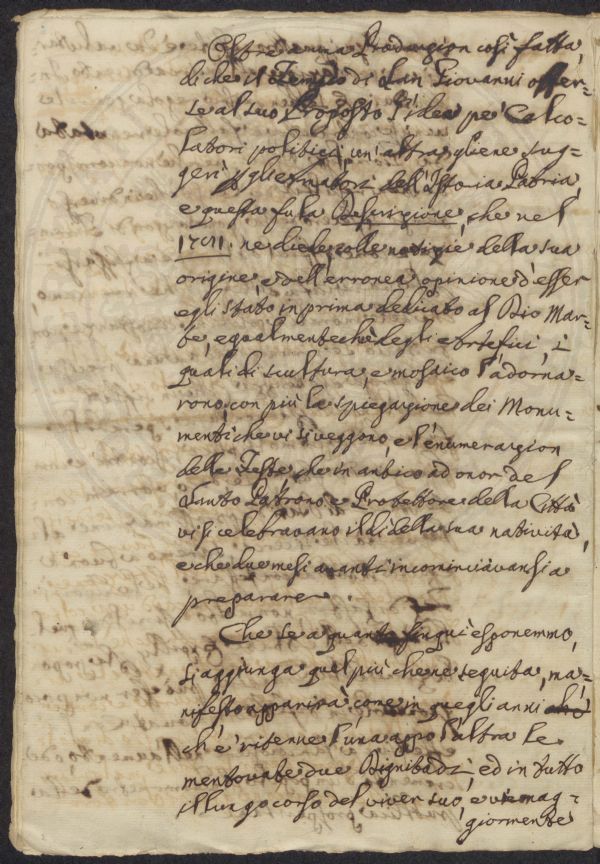 Oltre a una Produzion così fatta,
di che il Tempio di San Giovanni offer=
se al suo Proposto l'idea pe' Calco=
latori politici, un' altra gliene sug=
gerì pegli amatori dell'Istoria Patria,
e questa fu la Descrizione, che nel
ne diede colle notizie della sua
origine, e dell'erronea opinione d'esser
egli stato in prima dedicato al Dio Mar=
te, egualmente che degli Artefici, i
quali di scultura, e mosaico l'adorna=
rono, con più la spiegazione dei Monu=
menti che vi si veggono, e l'enumerazion
delle Feste, che in antico ad onor del
Santo Patrono, e Protettore della Città
vi si celebravano il dì della sua natività,
e che due mesi avanti incominciavansi a
preparare.
Che se a quanto finquì esponemmo,
si aggiunga quel più che ne seguita, ma=
nifesto apparirà come in quegli anni
ch'e' ritenne l'una appo l'altra le
mentovate due Dignitadi, ed in tutto
il lungo corso del viver suo, e vie mag=
giormente